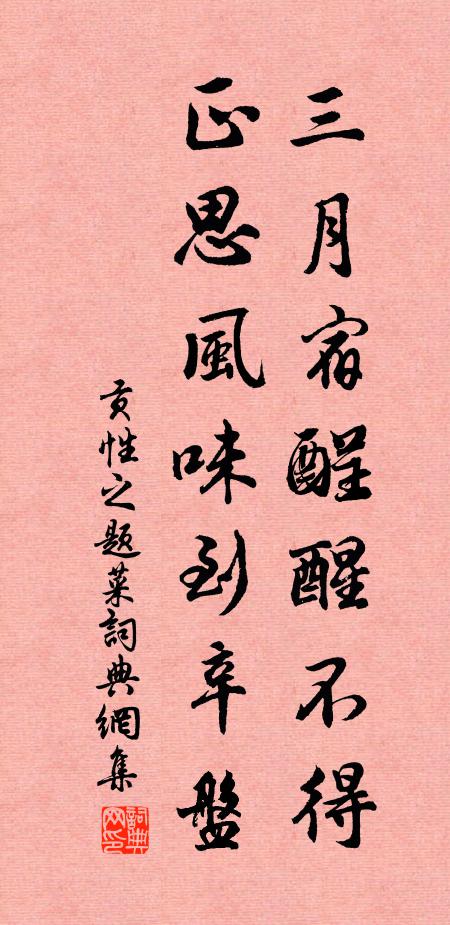 三月宿酲醒不得
正思風味到辛盤
貢性之題菜詞典網集
詞典網印